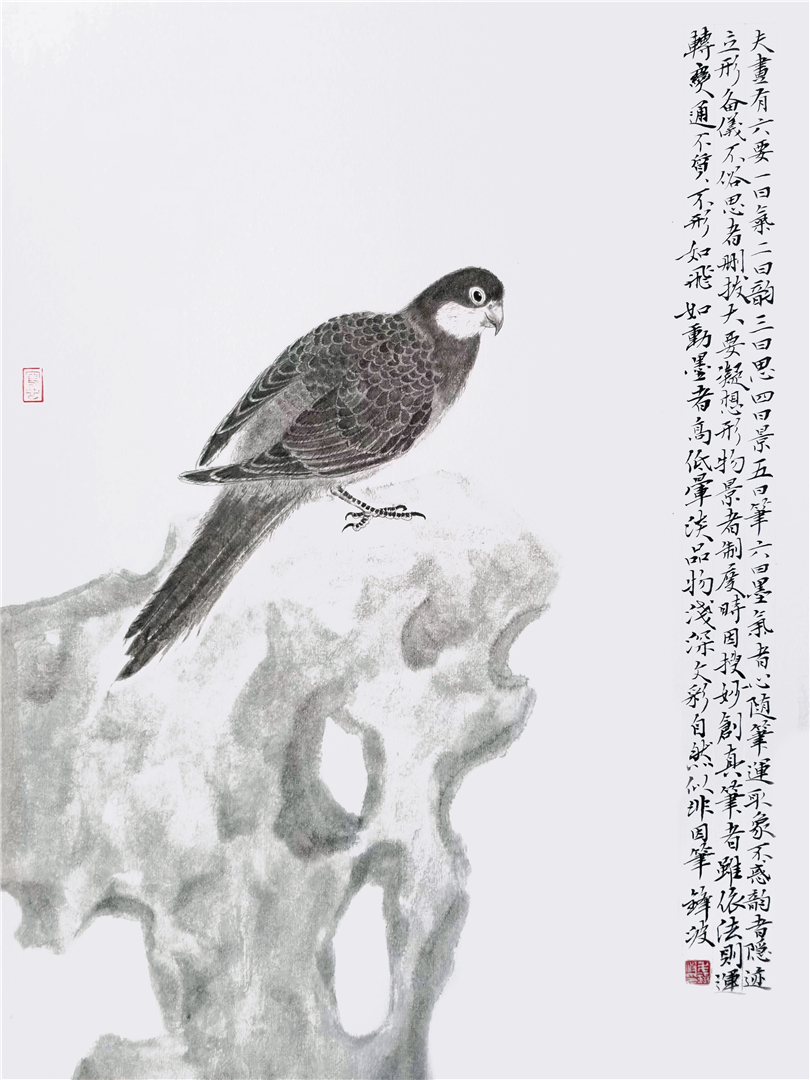 夫畫有六要一曰氣二曰韵三曰思四曰景五曰筆六曰墨氣者心随筆運取象不惑韵者隐迹
立形备儀不俗思者刪拔大要凝想形物景者制度時因搜妙創真筆者雖依法則運
轉變通不質不形如飛如動墨者高低暈淡品物淺深文彩自然似非因筆 鋒波